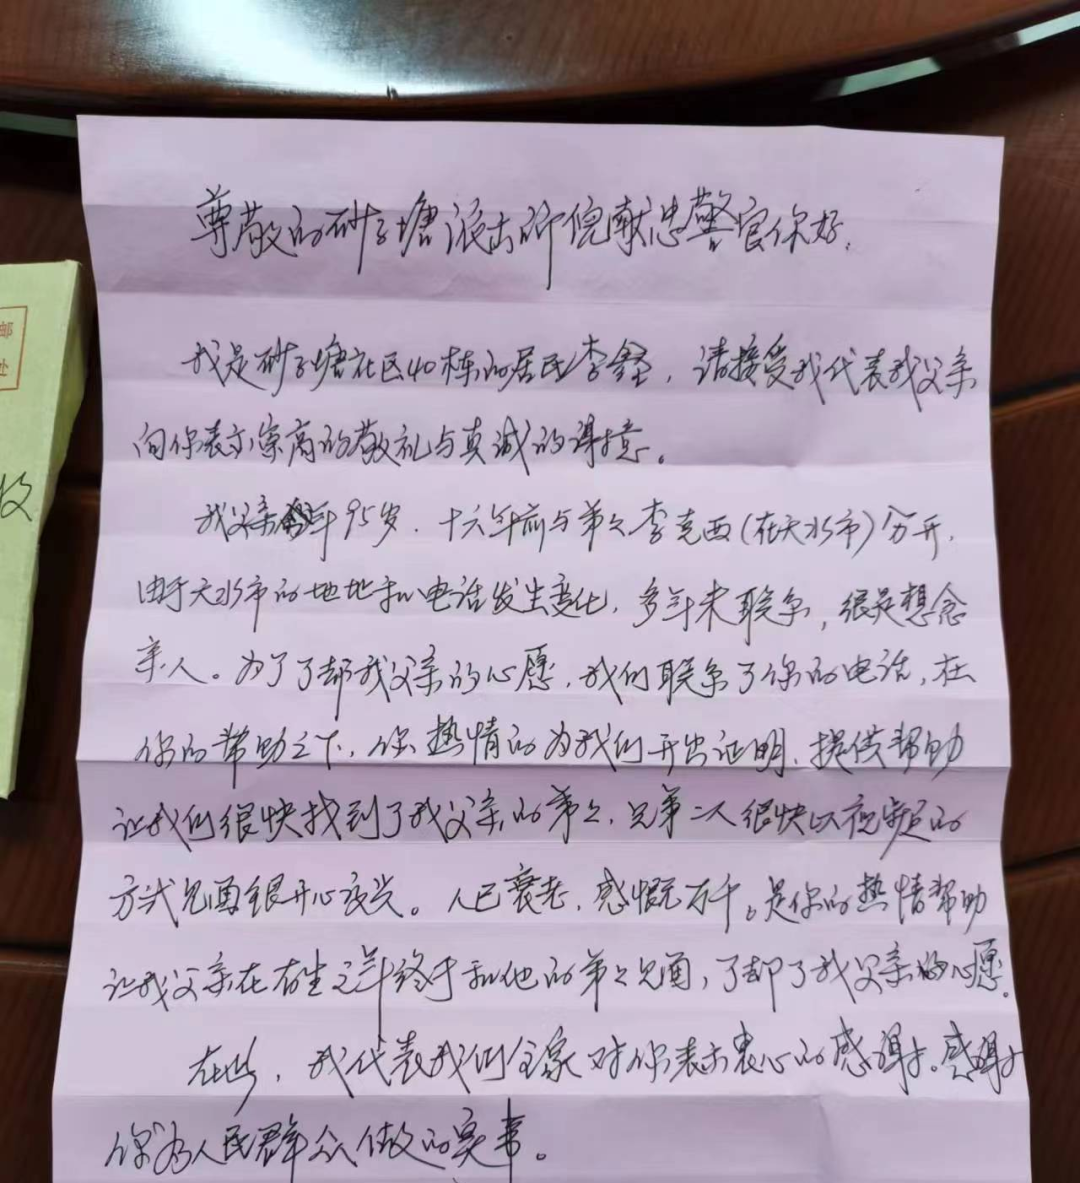 尊敬的砂子塘派出所倪献忠警官你好.
我是砂子塘社区40栋的居民李,请接受我代表我父亲
向你表示崇高的敬礼与真诚的谢意。
我父亲今年95岁.十六年前与弟弟李克西(在天水市)分开.
由于天水市的地址和电话发生变化,多年未联系,很是想念
亲人。为了了却我父亲的心愿,我们联系了你的电话,在
你的帮助之下,你热情的为我们开出证明、提供帮助
让我们很快找到了我父亲的弟弟,兄弟二人很快以视频的
方式见面很开心。人已衰老,感慨万千。是你的热情帮助
让我父亲在有生之年终于和他的弟弟见面,了却了我父亲的心愿.
在此,我代表我们全家对你表示衷心的感谢。感谢
你为人民群众做的实事。
邮
处
收